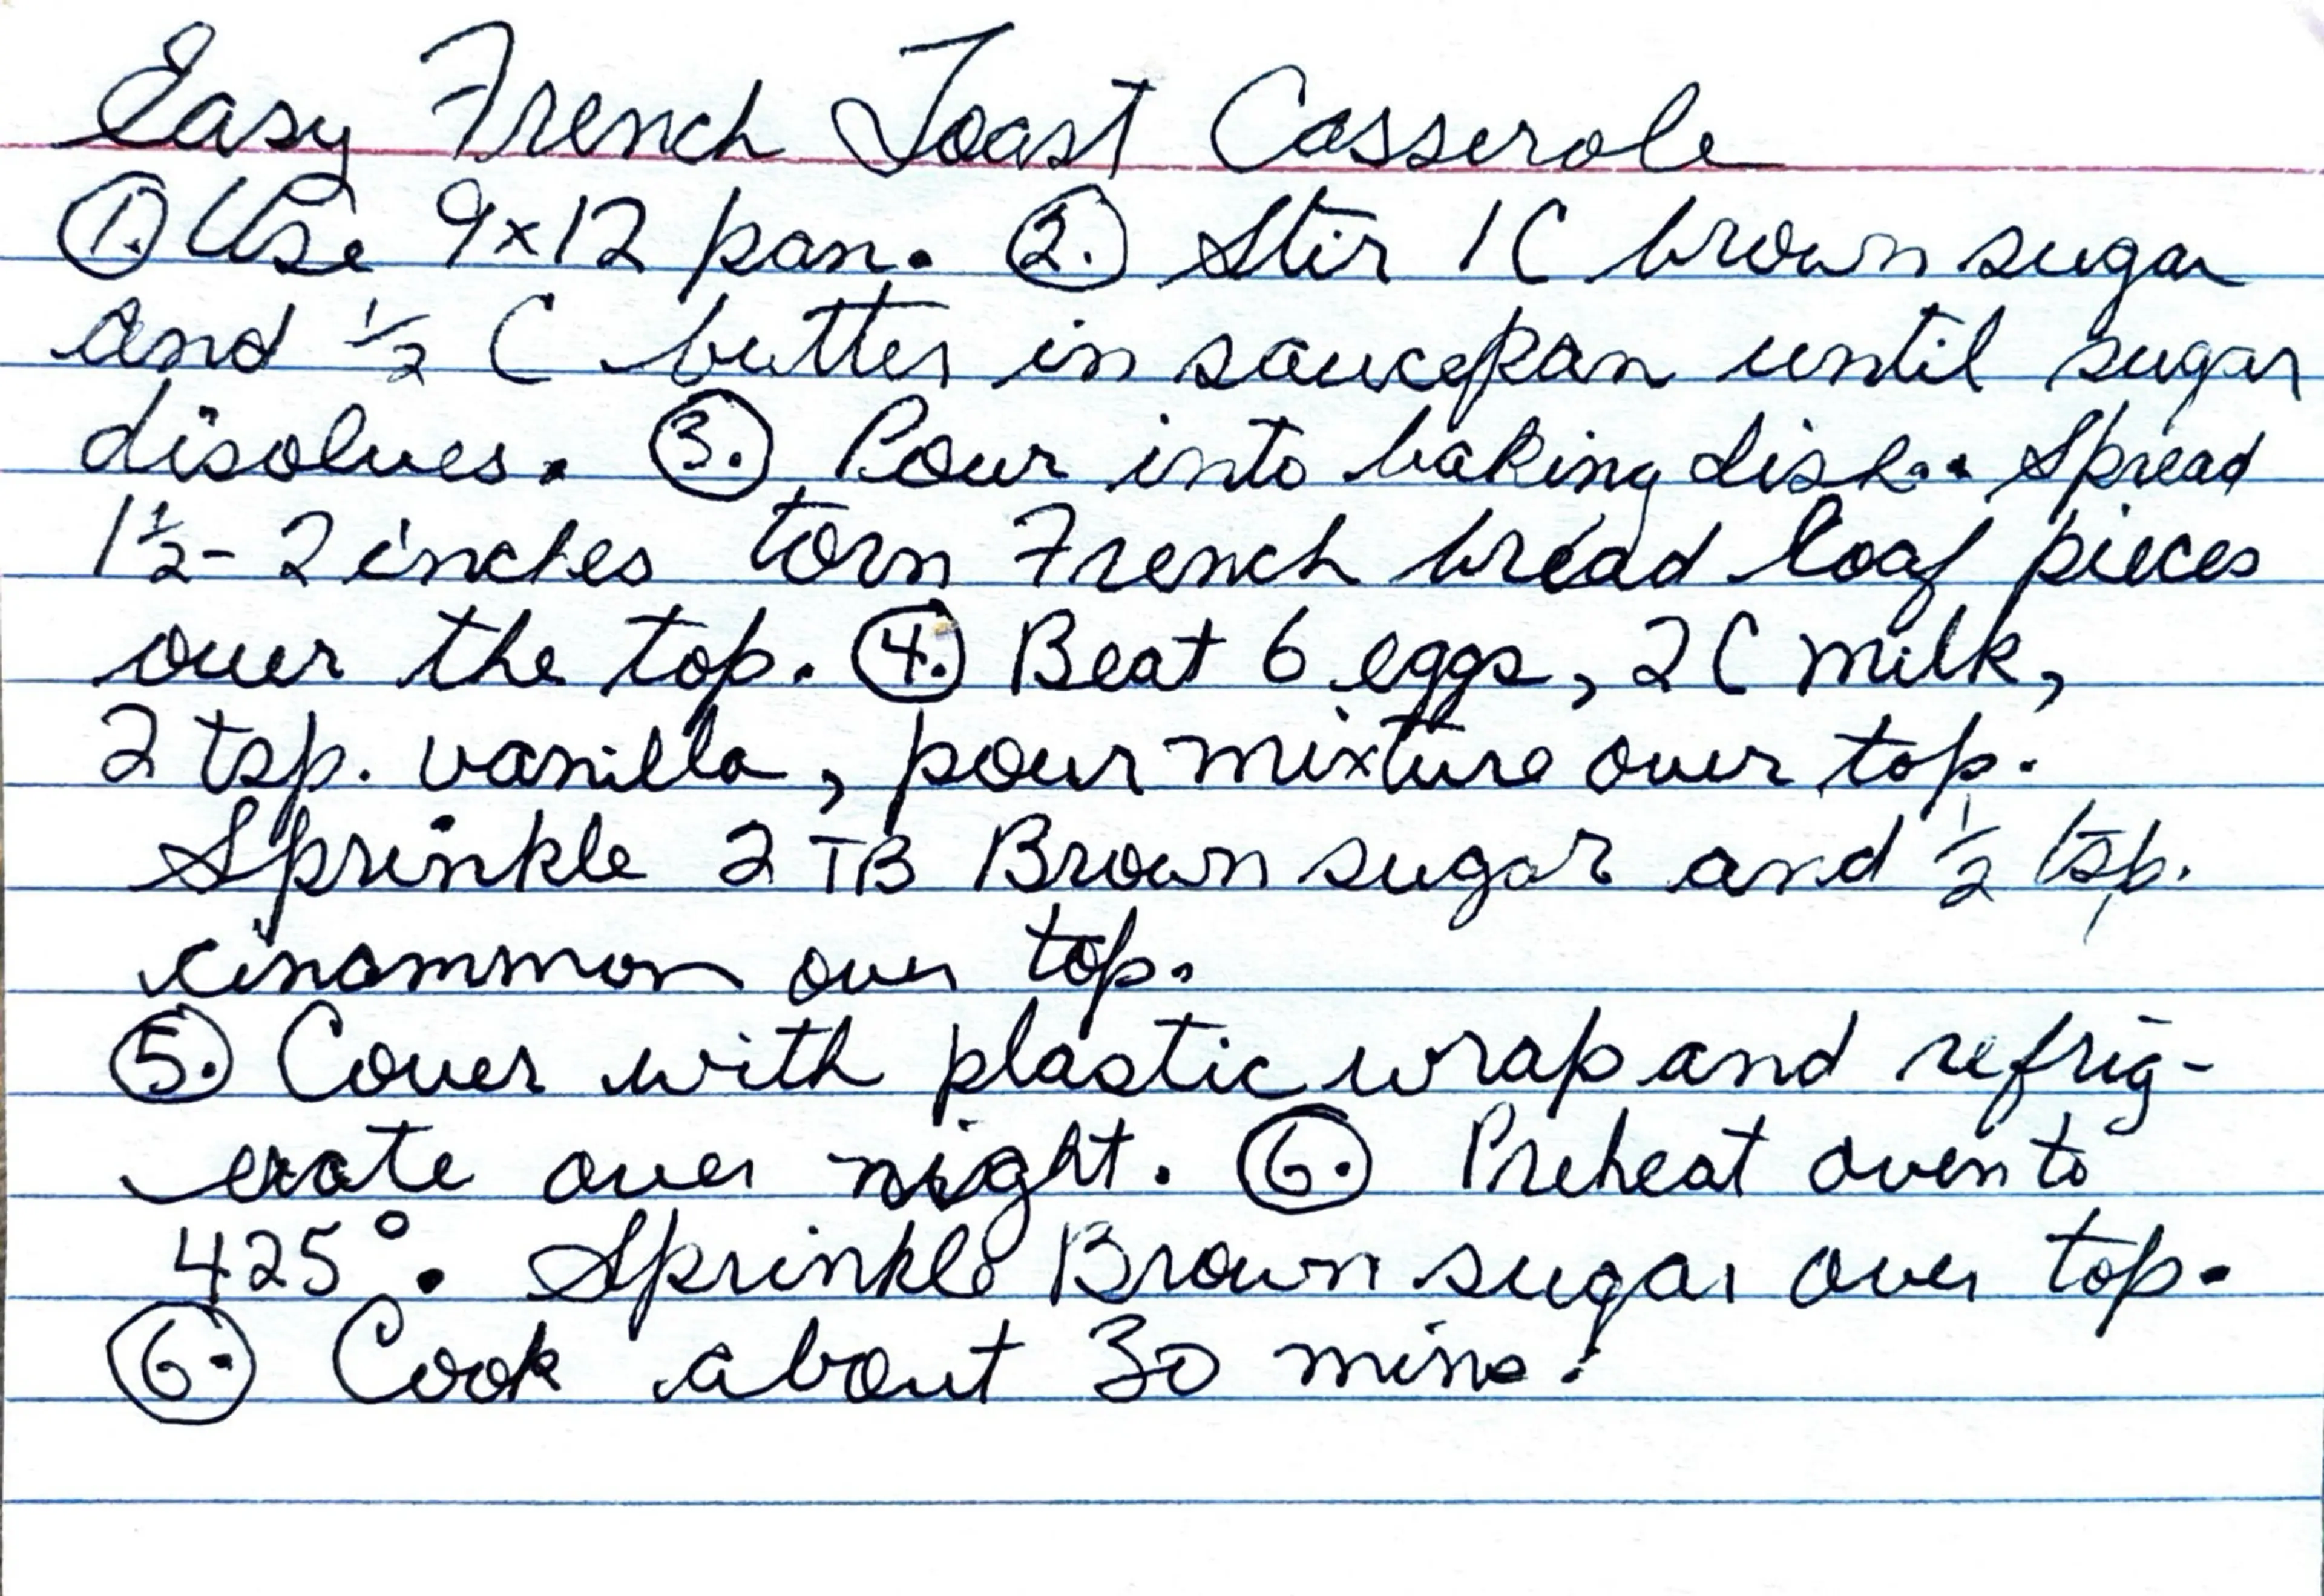 Easy French Toast Casserole
1. Use 9x12 pan. 2. Stir 1 C brown sugar
and 1/2 C butter in saucepan until sugar
disolves. 3. Pour into baking dish. Spread
1 1/2 - 2 inches torn French bread loaf pieces
over the top. 4. Beat 6 eggs, 2 C milk,
2 tsp. vanilla, pour mixture over top.
Sprinkle 2 TB Brown sugar and 1/2 tsp.
cinammon over top.
5. Cover with plastic wrap and refrig-
erate over night. 6. Preheat oven to
425°. Sprinkle Brown sugar over top.
6. Cook about 30 mins!